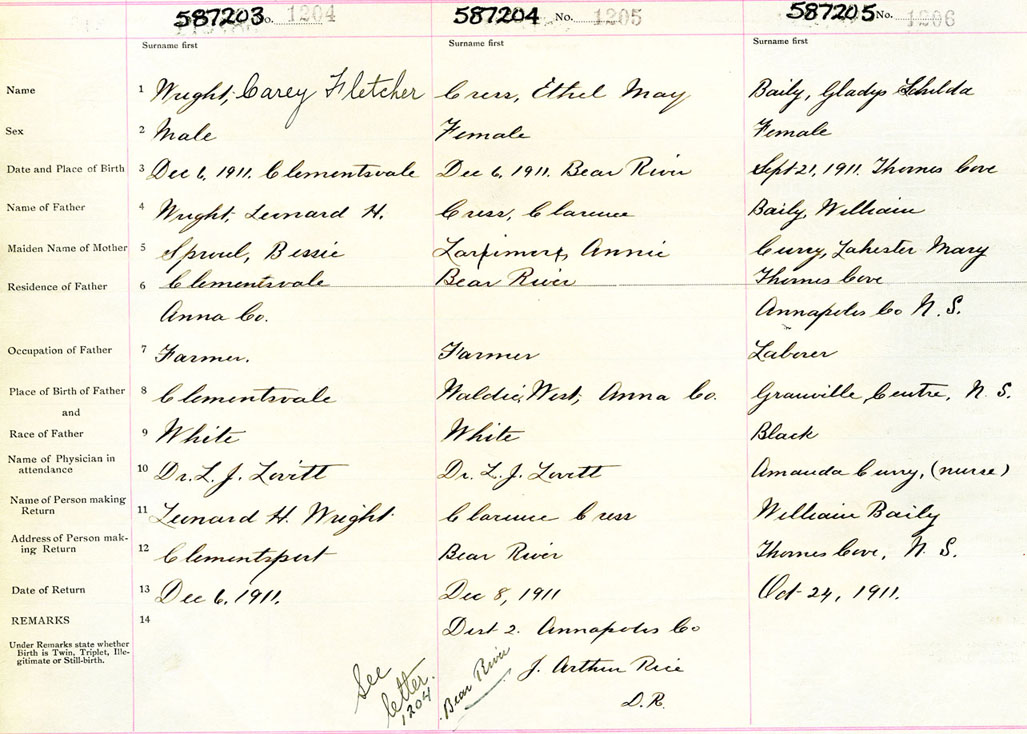 587203 No. 1204 587204 No. 1205 587205 No. 1206
Surname first Surname first Surname first
Name 1 Wright, Carey Fletcher Cress, Ethel May Baily, Gladys
Sex 2 Male Female Female
Date and Place of Birth 3 Dec 6, 1911. Clementsvale Dec 6, 1911. Bear River Sept 21, 1911. Thornes Cove
Name of Father 4 Wright, Leonard H. Cress, Clarence Baily, William
Maiden Name of Mother 5 Sproul, Bessie Annie Curry, Mary
Residence of Father 6 Clementsvale Bear River Thornes Cove
Anna Co. Annapolis Co N. S.
Occupation of Father 7 Farmer. Farmer Laborer
Place of Birth of Father 8 Clementsvale West, Anna Co. Granville Centre, N. S.
and
Race of Father 9 White White Black
Name of Physician in
attendance 10 Dr. L. J. Lovitt Dr. L. J. Lovitt Amanda Curry, (nurse)
Name of Person making
Return 11 Leonard H. Wright Clarence Cress William Baily
Address of Person mak-
ing Return 12 Clementsport Bear River Thornes Cove, N. S.
Date of Return 13 Dec 6, 1911. Dec 8, 1911 Oct 24, 1911.
REMARKS 14 Dist 2. Annapolis Co
Under Remarks state whether
Birth is Twin, Triplet, Ille-
gitimate or Still-birth.
See
letter.
1204
Bear River
J. Arthur Rice
D.R.